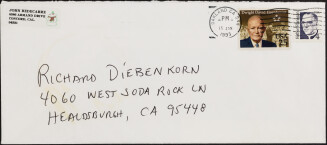 JOHN
CONCORD, CAL.
PM
1991
Dwight David Eisenhower
RICHARD DIEBENKORN
4060 WEST SODA ROCK LN
HEALDSBURGH, CA 95448